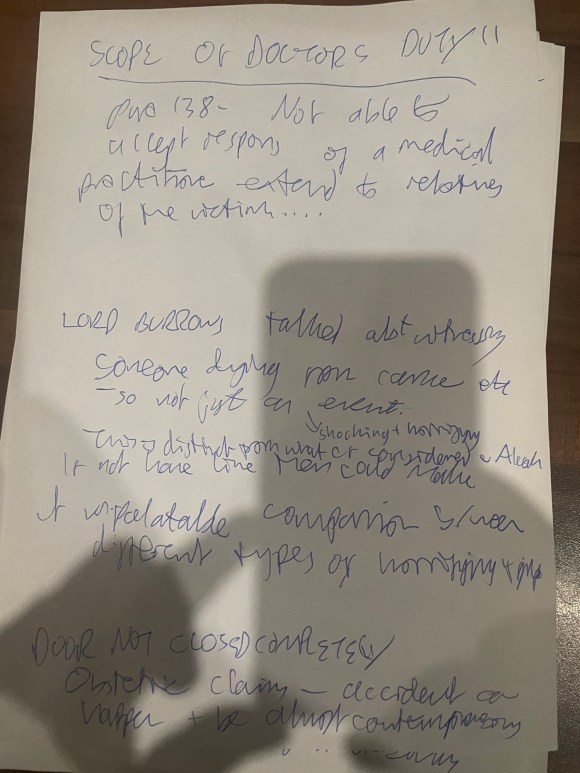 SCOPE OF DOCTORS DUTY "
Para 138 - Not able to
accept respons of a medical
practitione extend to relatives
of the victim....
LORD BURROWS talked abt witnessing
someone dying from cancer etc
- so not just an event.
shocking + horrifying
This is distinct from what Ct considered in Alcock
If not have line then could make
unpalatable comparison b/ween
different types of horrifying +
DOOR NOT CLOSED COMPLETELY
Obstetric claims - accident can
happen + be almost contemporaneous